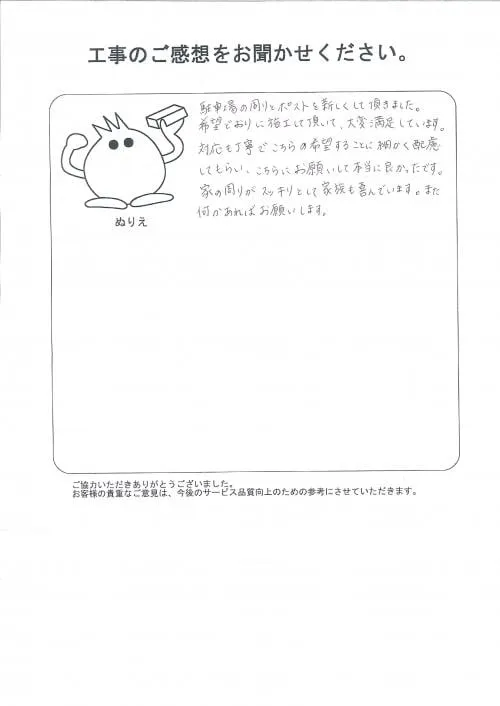 工事のご感想をお聞かせください。
駐車場の周りとポストを新しくして頂きました。
希望どおりに施工して頂いて、大変満足しています。
対応も丁寧でこちらの希望することに細かく配慮
してもらい、こちらにお願いして本当に良かったです。
家の周りがスッキリとして家族も喜んでいます。また
何かあればお願いします。
ぬりえ
ご協力いただきありがとうございました。
お客様の貴重なご意見は、今後のサービス品質向上のための参考にさせていただきます。